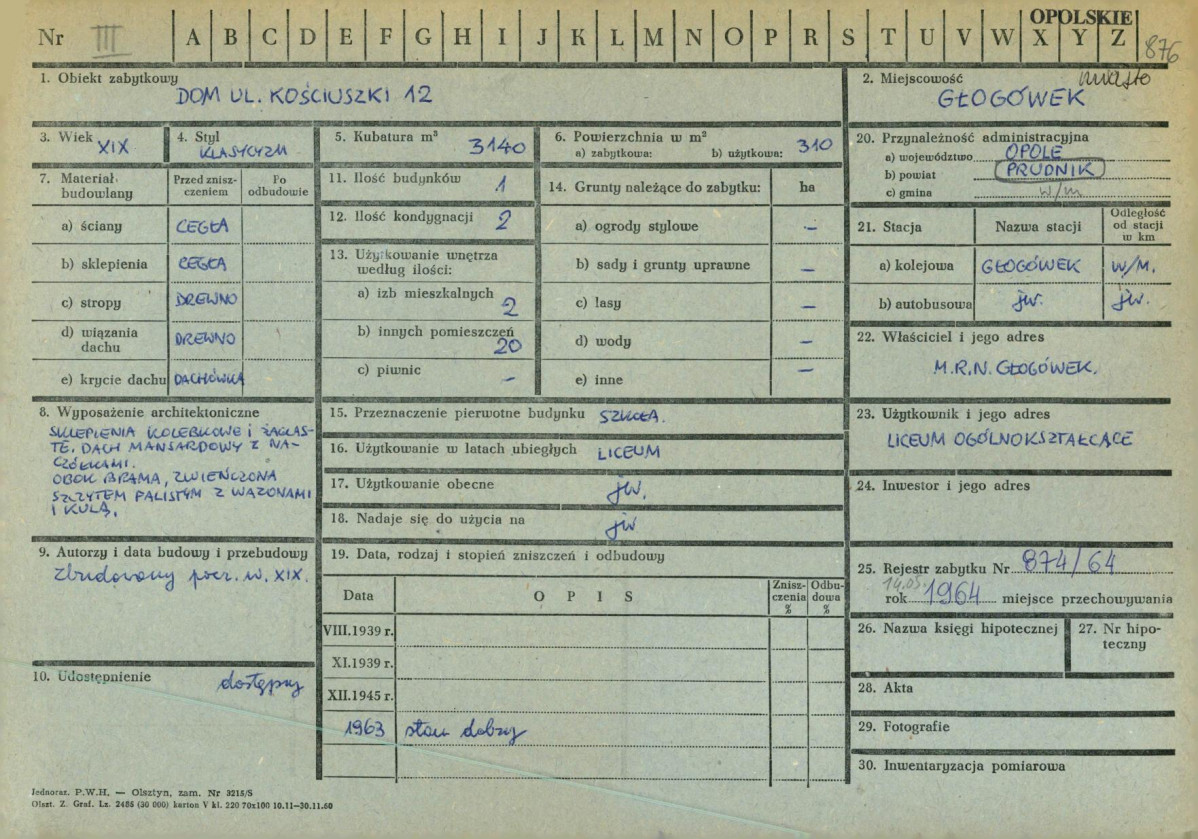 Nr III A B C D E F G H I J K L M N O P R S T U V W X Y Z
OPOLSKIE
876
1. Obiekt zabytkowy
DOM UL. KOŚCIUSZKI 12
2. Miejscowość
miasto
GŁOGÓWEK
3. Wiek
XIX
4. Styl
KLASYCYZM
5. Kubatura m³
3140
6. Powierzchnia w m²
a) zabytkowa: b) użytkowa: 310
20. Przynależność administracyjna
a) województwo OPOLE
b) powiat PRUDNIK
c) gmina w/m
7. Materiał budowlany
Przed znisz-
czeniem
Po
odbudowie
a) ściany CEGŁA
b) sklepienia CEGŁA
c) stropy DREWNO
d) wiązania
dachu DREWNO
e) krycie dachu DACHÓWKA
11. Ilość budynków 1
12. Ilość kondygnacji 2
13. Użytkowanie wnętrza
według ilości:
a) izb mieszkalnych
2
b) innych pomieszczeń
20
c) piwnic –
14. Grunty należące do zabytku: ha
a) ogrody stylowe –
b) sady i grunty uprawne –
c) lasy –
d) wody –
e) inne –
21. Stacja
Nazwa stacji
Odległość
od stacji
w km
a) kolejowa GŁOGÓWEK W/M.
b) autobusowa jw. jw.
22. Właściciel i jego adres
M.R.N. GŁOGÓWEK.
8. Wyposażenie architektoniczne
SKLEPIENIA KOLEBKOWE I ŻAGLAS-
TE. DACH MANSARDOWY Z NA-
CZÓŁKAMI.
OBOK BRAMA, ZWIEŃCZONA
SZCZYTEM FALISTYM Z WAZONAMI
I KULĄ.
15. Przeznaczenie pierwotne budynku SZKOŁA.
16. Użytkowanie w latach ubiegłych LICEUM
17. Użytkowanie obecne jw.
18. Nadaje się do użycia na jw
23. Użytkownik i jego adres
LICEUM OGÓLNOKSZTAŁCĄCE
24. Inwestor i jego adres
9. Autorzy i data budowy i przebudowy
Zbudowany pocz. w. XIX.
19. Data, rodzaj i stopień zniszczeń i odbudowy
Data
O P I S
Znisz-
czenia
%
Odbu-
dowa
%
VIII.1939 r.
XI.1939 r.
XII.1945 r.
1963 stan dobry
25. Rejestr zabytku Nr 874/64
14.05.
rok 1964 miejsce przechowywania
26. Nazwa księgi hipotecznej
27. Nr hipo-
teczny
10. Udostępnienie
dostępny
28. Akta
29. Fotografie
30. Inwentaryzacja pomiarowa
Jednoraz. P.W.H. — Olsztyn, zam. Nr 3215/S
Olszt. Z. Graf. Lz. 2485 (30 000) karton V kl. 220 70x100 10.11—30.11.60